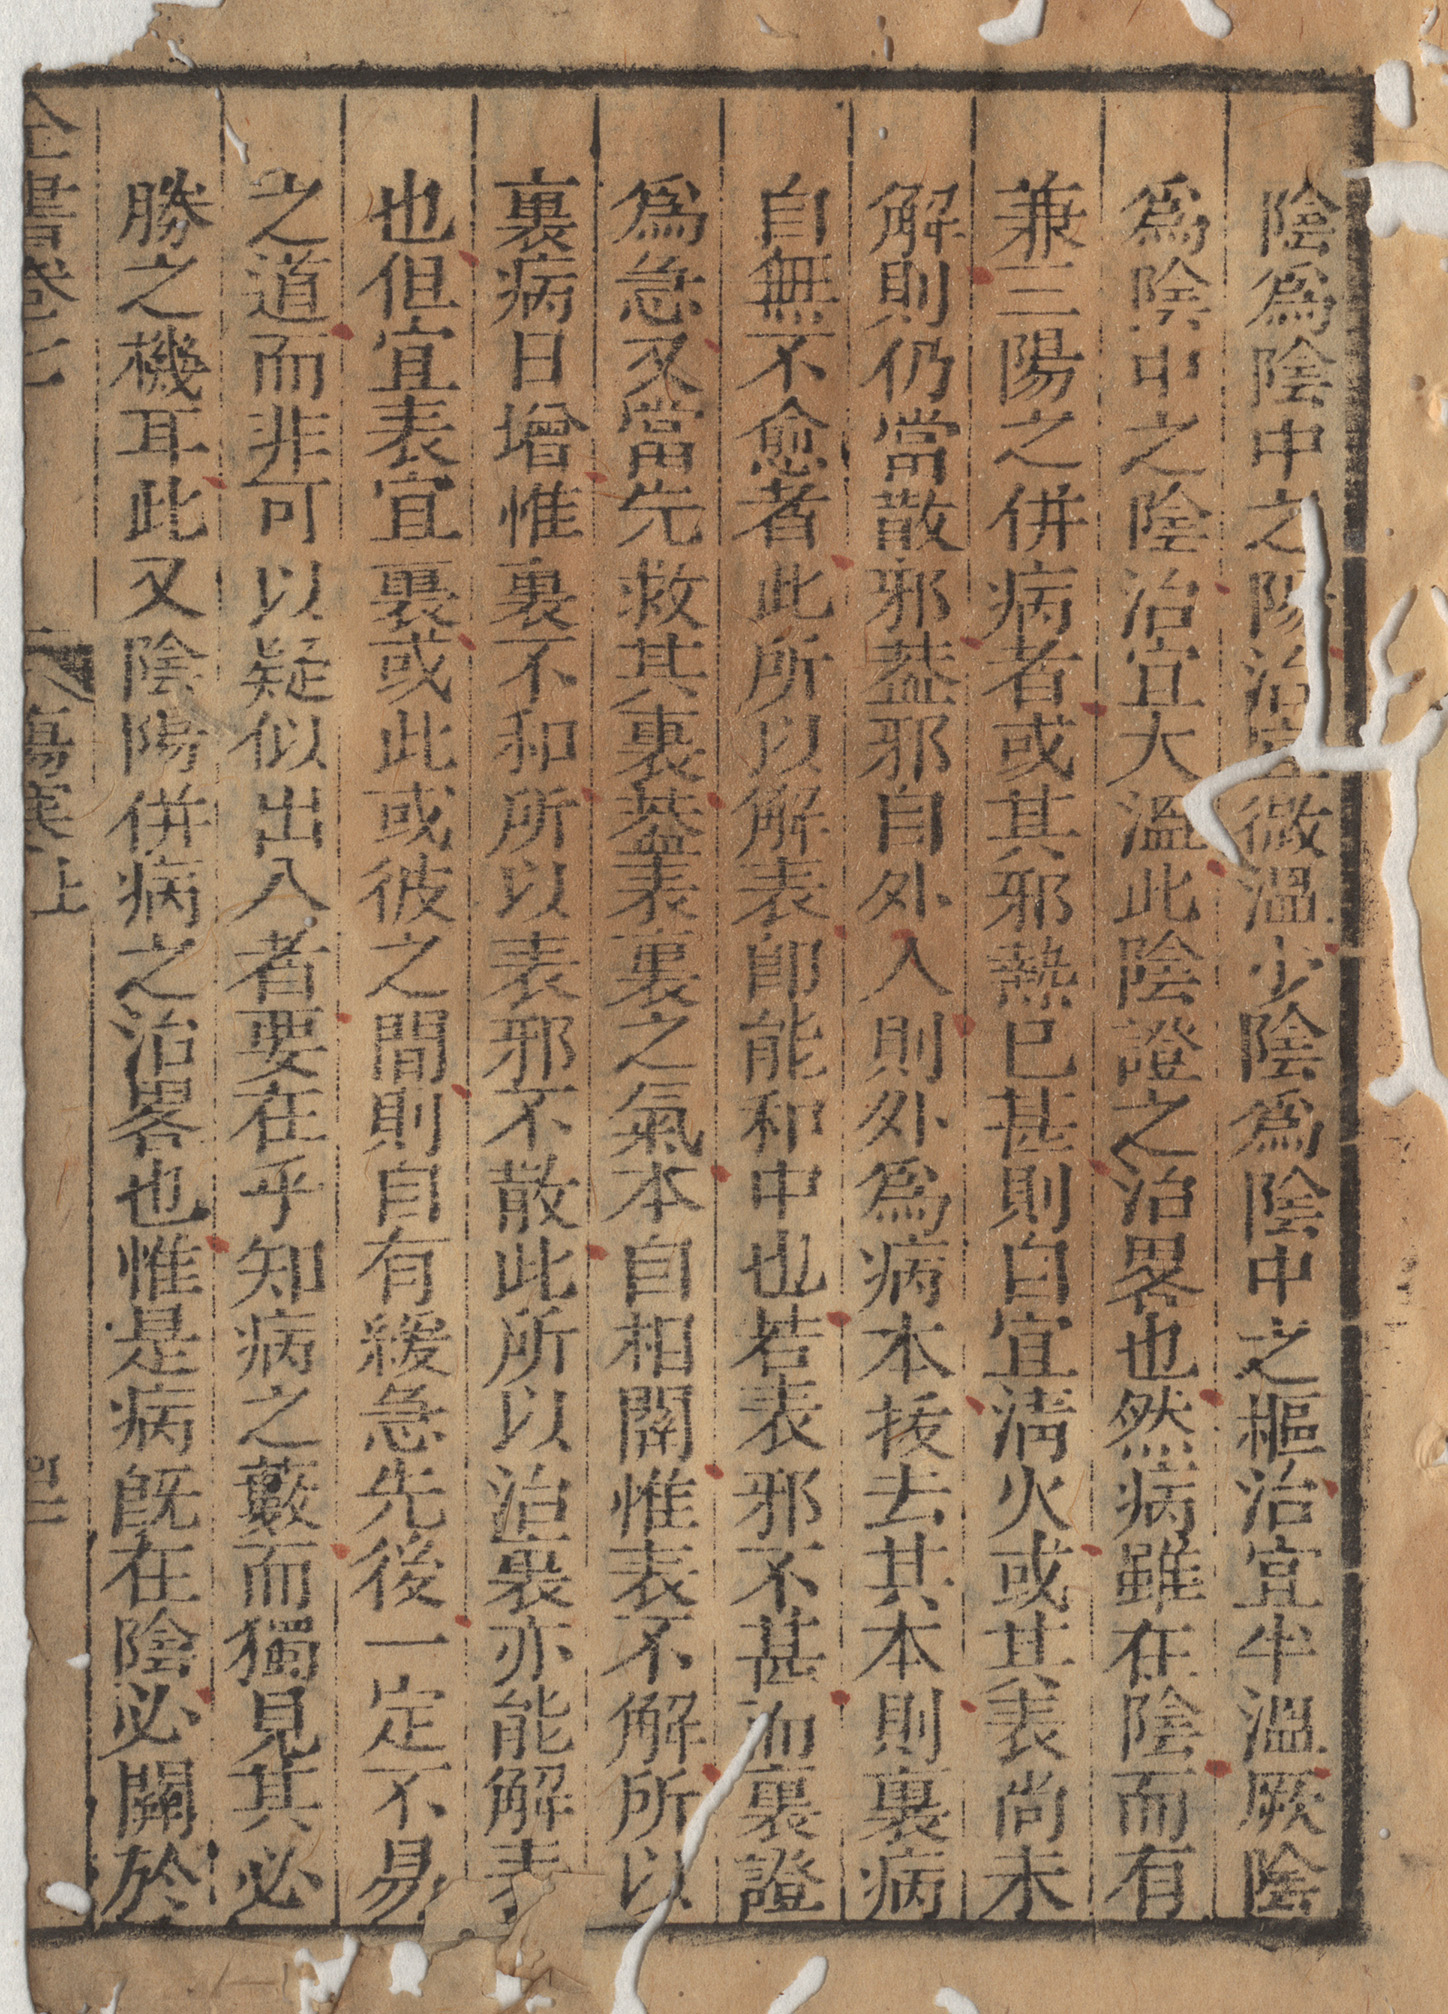 陰爲陰中之陽治宜微溫少陰爲陰中之樞治宜半溫厥陰
爲陰中之陰治宜大溫此陰證之治畧也然病雖在陰而有
兼三陽之併病者或其邪熱已甚則自宜淸火或其表尚未
解則仍當散邪葢邪自外入則外爲病本拔去其本則裏病
自無不愈者此所以解表卽能和中也若表邪不甚而裏證
爲急又當先救其裏葢表裏之氣本自相關惟表不解所以
裏病日增惟裏不和所以表邪不散此所以治裏亦能解表
也但宜表宜裏或此或彼之間則自有緩急先後一定不易
之道而非可以疑似出入者要在乎知病之藪而獨見其必
勝之機耳此又陰陽併病之治畧也惟是病旣在陰必關於
全書卷七 傷寒上 四二